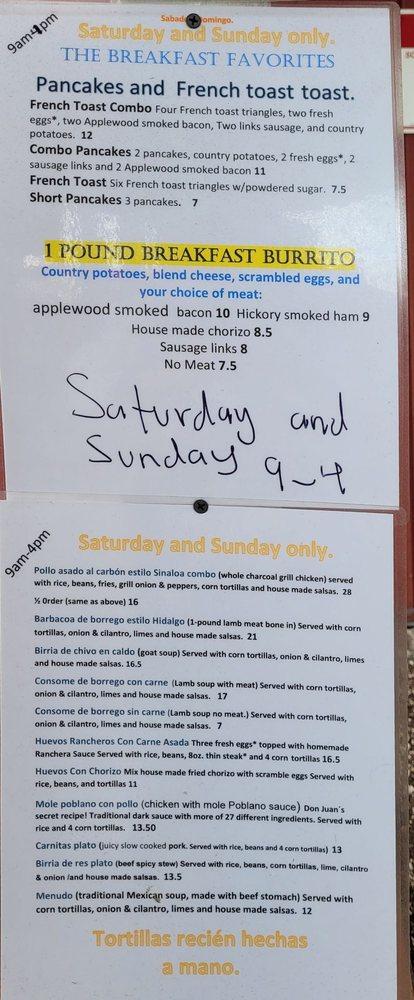 Sabado Domingo.
9am-4pm
Saturday and Sunday only.
THE BREAKFAST FAVORITES
Pancakes and French toast toast.
French Toast Combo Four French toast triangles, two fresh
eggs*, two Applewood smoked bacon, Two links sausage, and country
potatoes. 12
Combo Pancakes 2 pancakes, country potatoes, 2 fresh eggs*, 2
sausage links and 2 Applewood smoked bacon 11
French Toast Six French toast triangles w/powdered sugar. 7.5
Short Pancakes 3 pancakes. 7
1 POUND BREAKFAST BURRITO
Country potatoes, blend cheese, scrambled eggs, and
your choice of meat:
applewood smoked bacon 10 Hickory smoked ham 9
House made chorizo 8.5
Sausage links 8
No Meat 7.5
Saturday and
Sunday 9-4
9am-4pm
Saturday and Sunday only.
Pollo asado al carbón estilo Sinaloa combo (whole charcoal grill chicken) served
with rice, beans, fries, grill onion & peppers, corn tortillas and house made salsas. 28
½ Order (same as above) 16
Barbacoa de borrego estilo Hidalgo (1-pound lamb meat bone in) Served with corn
tortillas, onion & cilantro, limes and house made salsas. 21
Birria de chivo en caldo (goat soup) Served with corn tortillas, onion & cilantro, limes
and house made salsas. 16.5
Consome de borrego con carne (Lamb soup with meat) Served with corn tortillas,
onion & cilantro, limes and house made salsas. 17
Consome de borrego sin carne (Lamb soup no meat.) Served with corn tortillas,
onion & cilantro, limes and house made salsas. 7
Huevos Rancheros Con Carne Asada Three fresh eggs* topped with homemade
Ranchera Sauce Served with rice, beans, 8oz. thin steak* and 4 corn tortillas 16.5
Huevos Con Chorizo Mix house made fried chorizo with scramble eggs Served with
rice, beans, and tortillas 11
Mole poblano con pollo (chicken with mole Poblano sauce) Don Juan´s
secret recipe! Traditional dark sauce with more of 27 different ingredients. Served with
rice and 4 corn tortillas. 13.50
Carnitas plato (juicy slow cooked pork. Served with rice, beans and 4 corn tortillas) 13
Birria de res plato (beef spicy stew) Served with rice, beans, corn tortillas, lime, cilantro
& onion /and house made salsas. 13.5
Menudo (traditional Mexican soup, made with beef stomach) Served with
corn tortillas, onion & cilantro, limes and house made salsas. 12
Tortillas recién hechas
a mano.